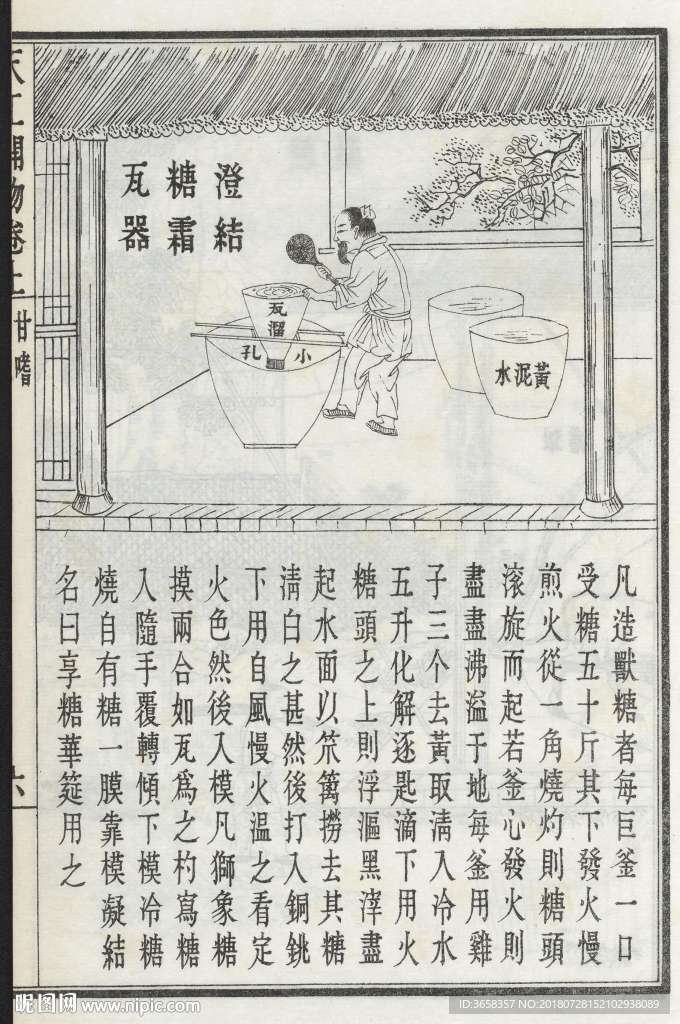 澄結
糖霜
瓦器
瓦溜
小孔
黃泥水
凡造獸糖者每巨釜一口
受糖五十斤其下發火慢
煎火從一角燒灼則糖頭
滚旋而起若釜心發火則
盡盡沸溢于地每釜用雞
子三个去黃取清入冷水
五升化解逐匙滴下用火
糖頭之上則浮漚黑滓盡
起水面以笊篱撈去其糖
清白之甚然後打入銅銚
下用自風慢火温之看定
火色然後入模凡獅象糖
摸兩合如瓦爲之杓寫糖
入隨手覆轉傾下模冷糖
燒自有糖一膜靠模凝結
名曰享糖華筵用之
天工開物卷上
甘嗜
六
昵图网 www.nipic.com
ID:3658357 NO:20180728152102938089